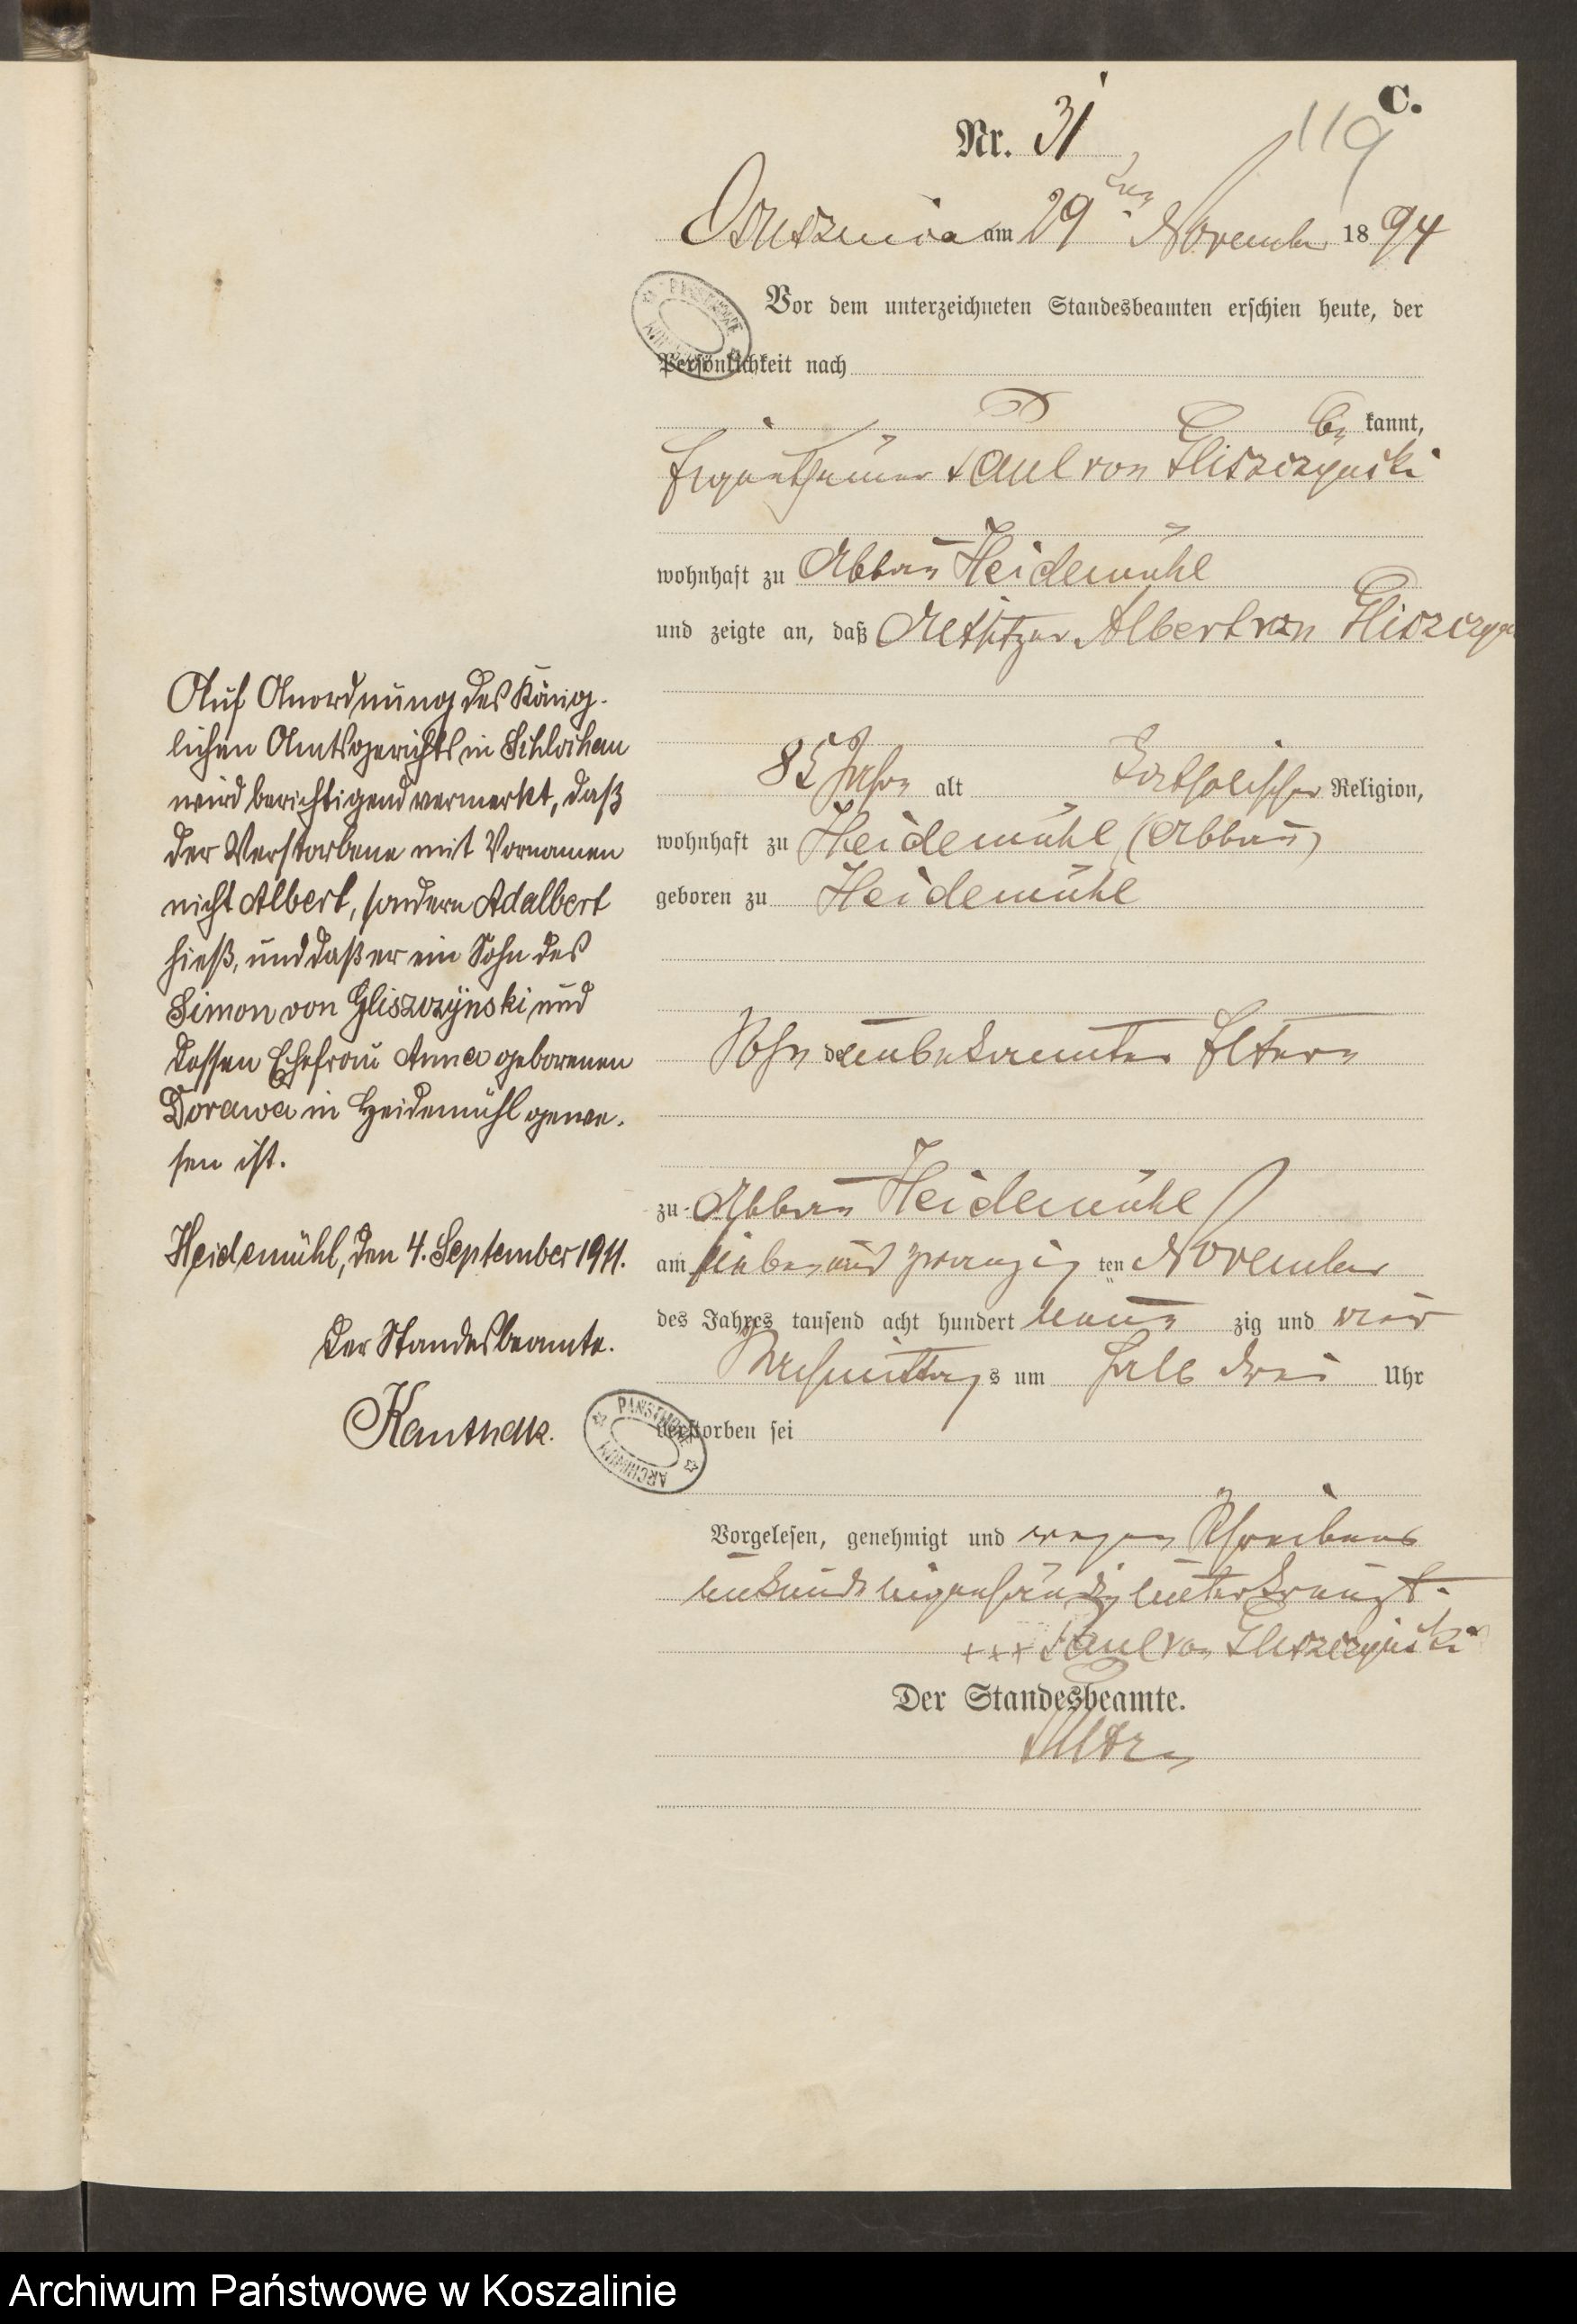 C.
119
Nr. 31
Ossusznica am 29ten November 1894
Vor dem unterzeichneten Standesbeamten erschien heute, der
Persönlichkeit nach
be kannt,
Eigenthümer Paul von Gliszczynski
wohnhaft zu Abbau Heidemühl
und zeigte an, daß Altsitzer Albert von Gliszczyn
85 Jahre alt katholischer Religion,
wohnhaft zu Heidemühl (Abbau)
geboren zu Heidemühl
Sohn der unbekannter Eltern
zu Abbau Heidemühl
am sieben und zwanzig ten November
des Jahres tausend acht hundert neun zig und vier
Nachmittags um halb drei Uhr
verstorben sei
Vorgelesen, genehmigt und wegen Schreibens
unkunde eigenhändig unterkreuzt.
+++ Paul von Gliszczynski
Der Standesbeamte.
Auf Anordnung des König-
lichen Amtsgerichts in Schlochau
wird berichtigend vermerkt, daß
der Verstorbene mit Vornamen
nicht Albert, sondern Adalbert
hieß, und daß er ein Sohn des
Simon von Gliszczynski und
dessen Ehefrau Anna geborenen
Dorawa in Heidemühl gewe-
sen ist.
Heidemühl, den 4. September 1911.
Der Standesbeamte.
Kanthak.
PAŃSTWOWE
ARCHIWUM
Archiwum Państwowe w Koszalinie